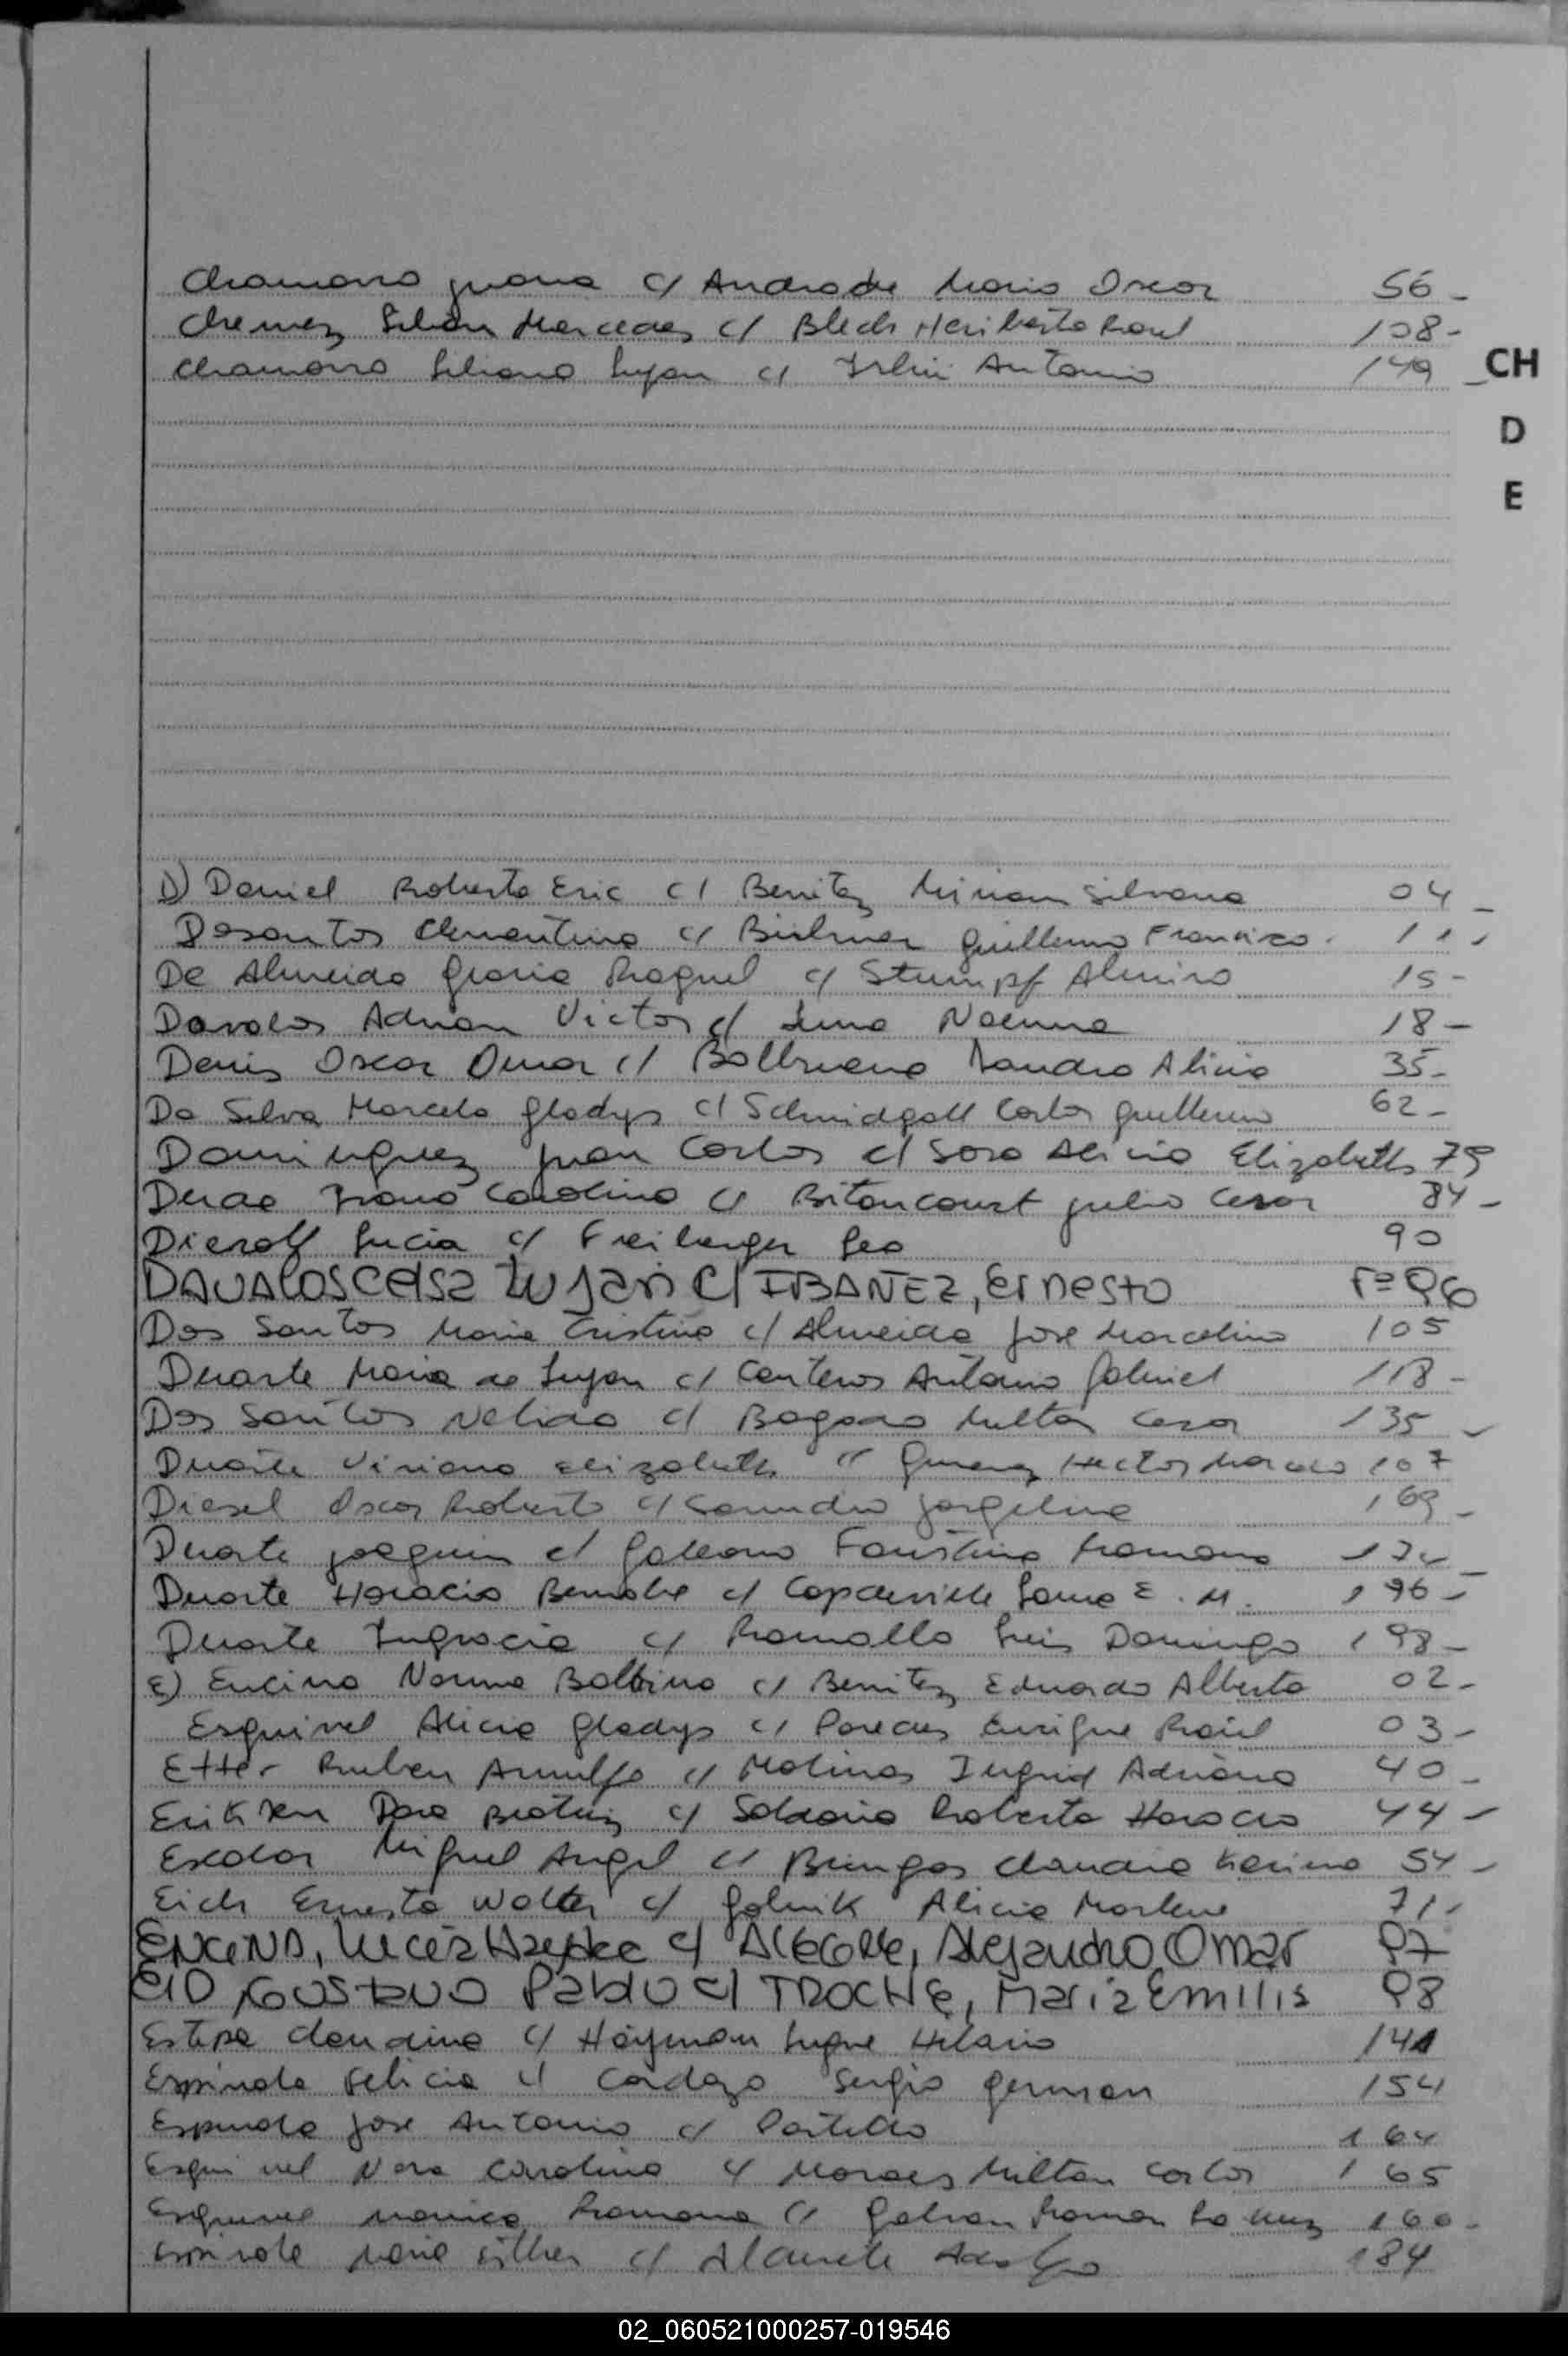 Chamorro Juana c/ Andrade Mario Oscar 56-
Chemez Lilian Mercedes c/ Blech Heriberto Raul 108-
Chamorro Liliana Lujan c/ Antonio 149
CH
D
E
D) Daniel Roberto Eric c/ Benitez Miriam Silvana 04-
Dosantos Clementina c/ Guillermo Francisco. 11-
De Almeida Gloria Raquel c/ Stumpf Almiro 15-
Davalos Adrian Victor c/ Luna Noemi 18-
Denis Oscar Omar c/ Balbuena Sandra Alicia 35-
Da Silva Marcela Gladys c/ Schmidgall Carlos Guillermo 62-
Dominguez Juan Carlos c/ Sosa Alicia Elizabeth 79
Carolina c/ Bitancourt Julio Cesar 84-
Dierolf Lucia c/ Freiberger Leo 90
DAVALOS Celsa Lujan c/ IBAÑEZ, Ernesto Fº 96
Dos Santos Maria Cristina c/ Almeida Jose Marcelino 105
Duarte Maria de Lujan c/ Canteros Antonio Gabriel 118-
Dos Santos Nelida c/ Milton Cesar 135
Duarte Viviana Elizabeth c/ Hector Marcelo 107
Diesel Oscar Roberto c/ Jorgelina 169-
Duarte Joaquin c/ Galeano Faustina Ramona
Duarte Horacio Bernabe c/ Capdeville Laura E. M. 196-
Duarte Ingracia c/ Ramallo Luis Domingo 198-
E) Encina Norma Balbina c/ Benitez Eduardo Alberto 02-
Esquivel Alicia Gladys c/ Paredes Enrique Raúl 03-
Etter Ruben Arnulfo c/ Molinas Ingrid Adriana 40-
Eriksen Dora Beatriz c/ Roberto Horacio 44-
Escobar Miguel Angel c/ Claudia Karina 54-
Eich Ernesto Walter c/ Golnik Alicia Marlene 71-
ENCINA, c/ ALEGRE, Alejandro Omar 97
CID, GUSTAVO Pablo c/ TROCHE, Maria Emilia 98
Claudina c/ Hilario 141
Espindola Felicia c/ Cardozo Sergio German 154
Espindola Jose Antonio c/ Portillo 164
Esquivel Nora Carolina c/ Moraes Milton Carlos 165
Esquivel Monica Ramona c/ Galvan Ramon 160-
Espindola Maria Esther c/ Adolfo 184
02_060521000257-019546